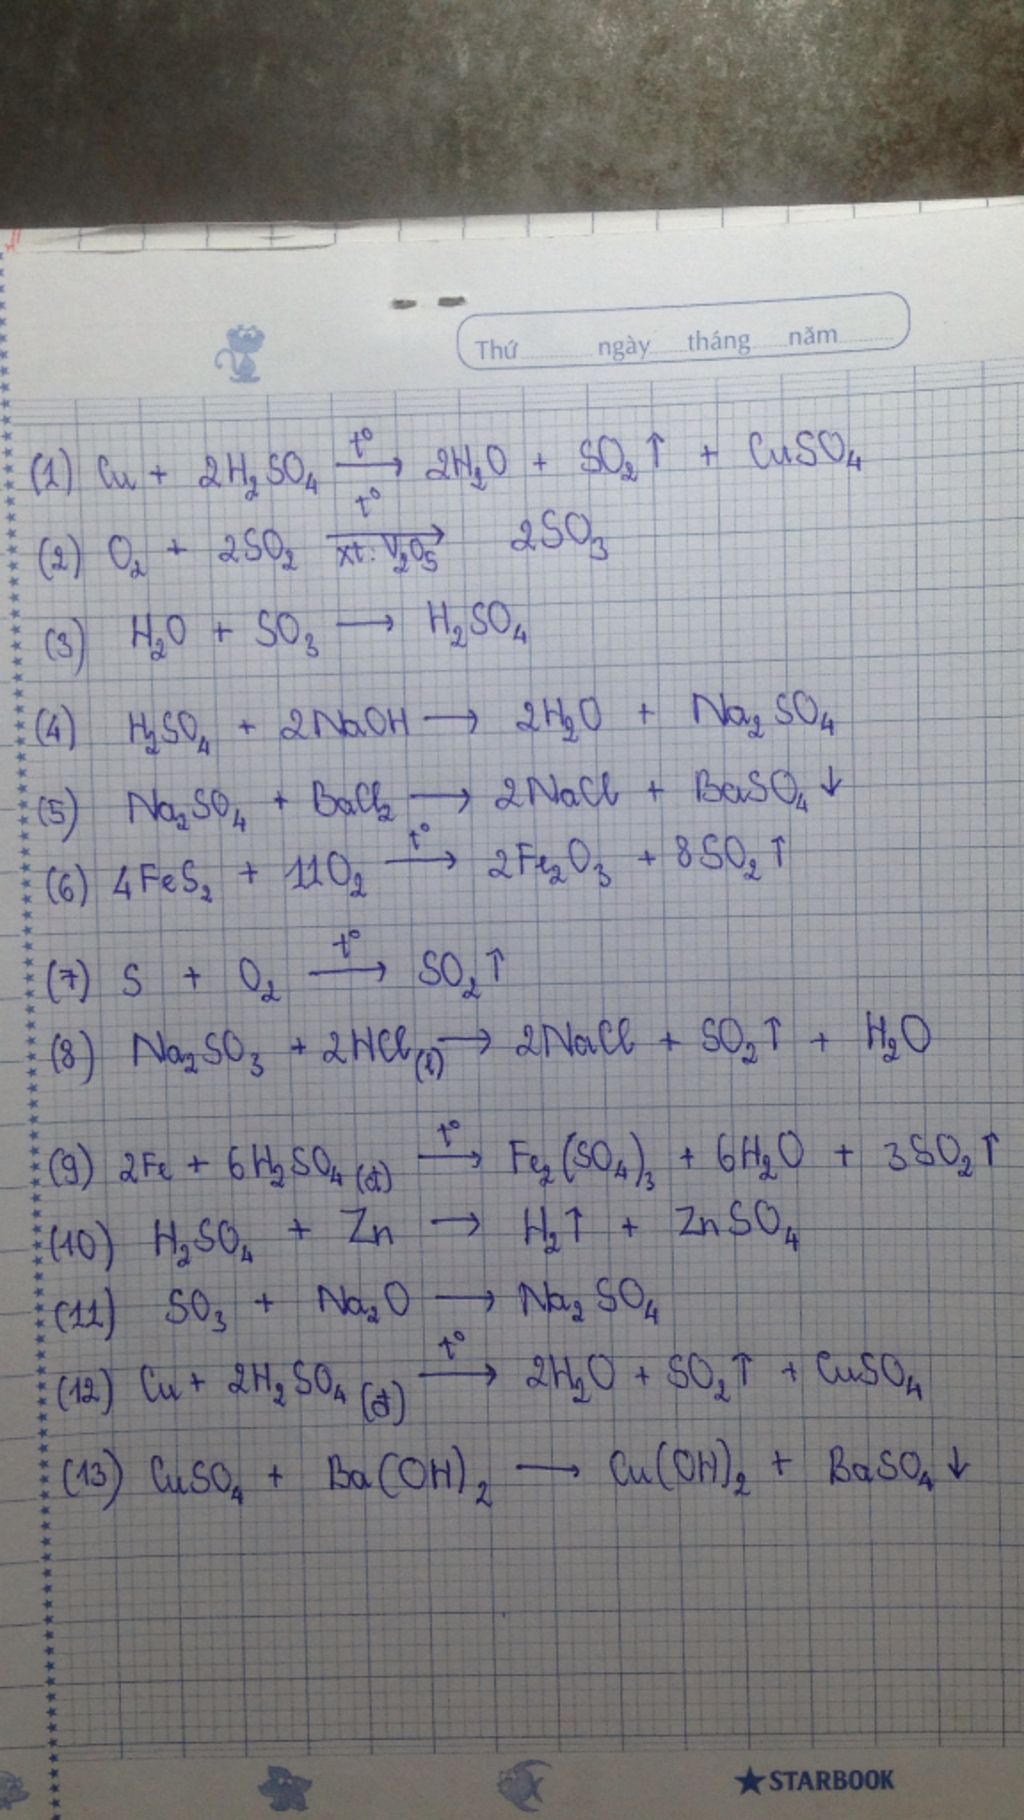 Thứ ngày tháng năm
(1) Cu + 2H₂SO₄ —t°→ 2H₂O + SO₂↑ + CuSO₄
(2) O₂ + 2SO₂ —t°, xt: V₂O₅→ 2SO₃
(3) H₂O + SO₃ → H₂SO₄
(4) H₂SO₄ + 2NaOH → 2H₂O + Na₂SO₄
(5) Na₂SO₄ + BaCl₂ → 2NaCl + BaSO₄↓
(6) 4FeS₂ + 11O₂ —t°→ 2Fe₂O₃ + 8SO₂↑
(7) S + O₂ —t°→ SO₂↑
(8) Na₂SO₃ + 2HCl(l) → 2NaCl + SO₂↑ + H₂O
(9) 2Fe + 6H₂SO₄(đ) —t°→ Fe₂(SO₄)₃ + 6H₂O + 3SO₂↑
(10) H₂SO₄ + Zn → H₂↑ + ZnSO₄
(11) SO₃ + Na₂O → Na₂SO₄
(12) Cu + 2H₂SO₄(đ) —t°→ 2H₂O + SO₂↑ + CuSO₄
(13) CuSO₄ + Ba(OH)₂ → Cu(OH)₂ + BaSO₄↓
★STARBOOK